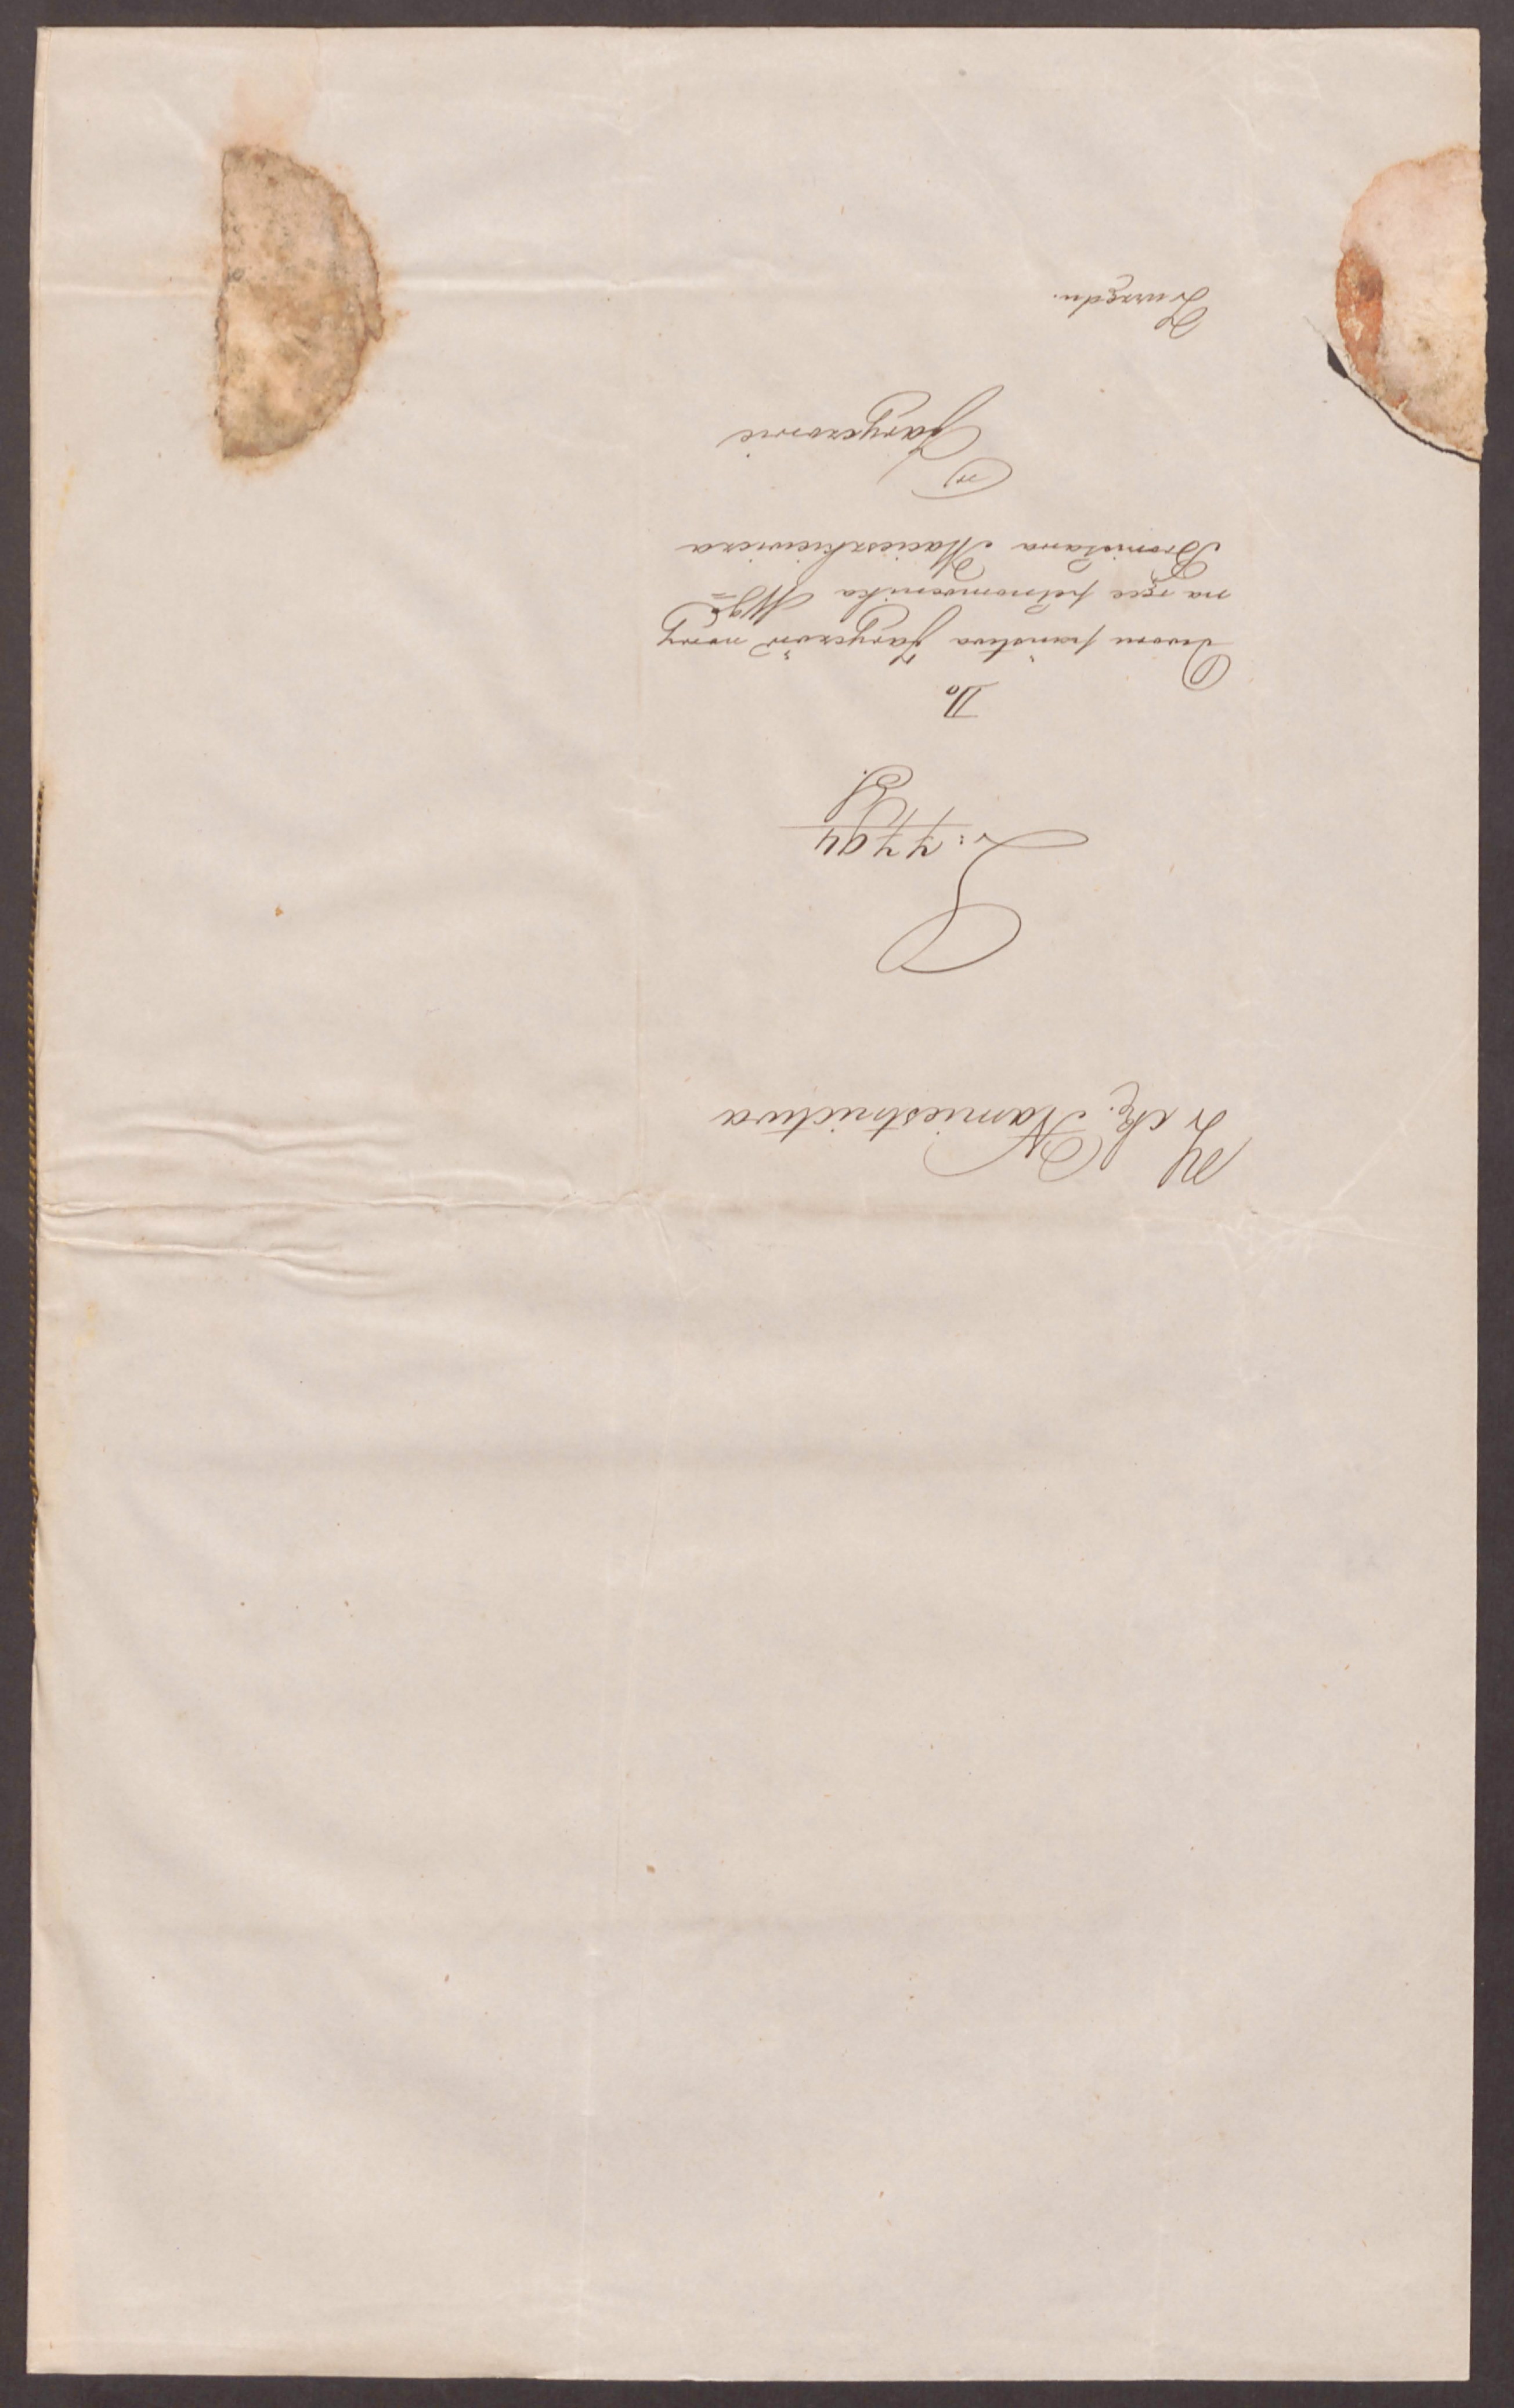 Z ck. Namiestnictwa
L: 7794
Do
Dworu państwa Jaryczów nowy
na ręce pełnomocnika Wgo
Bronisława Macieszkiewicza
w
Jaryczowie
Z urzędu.